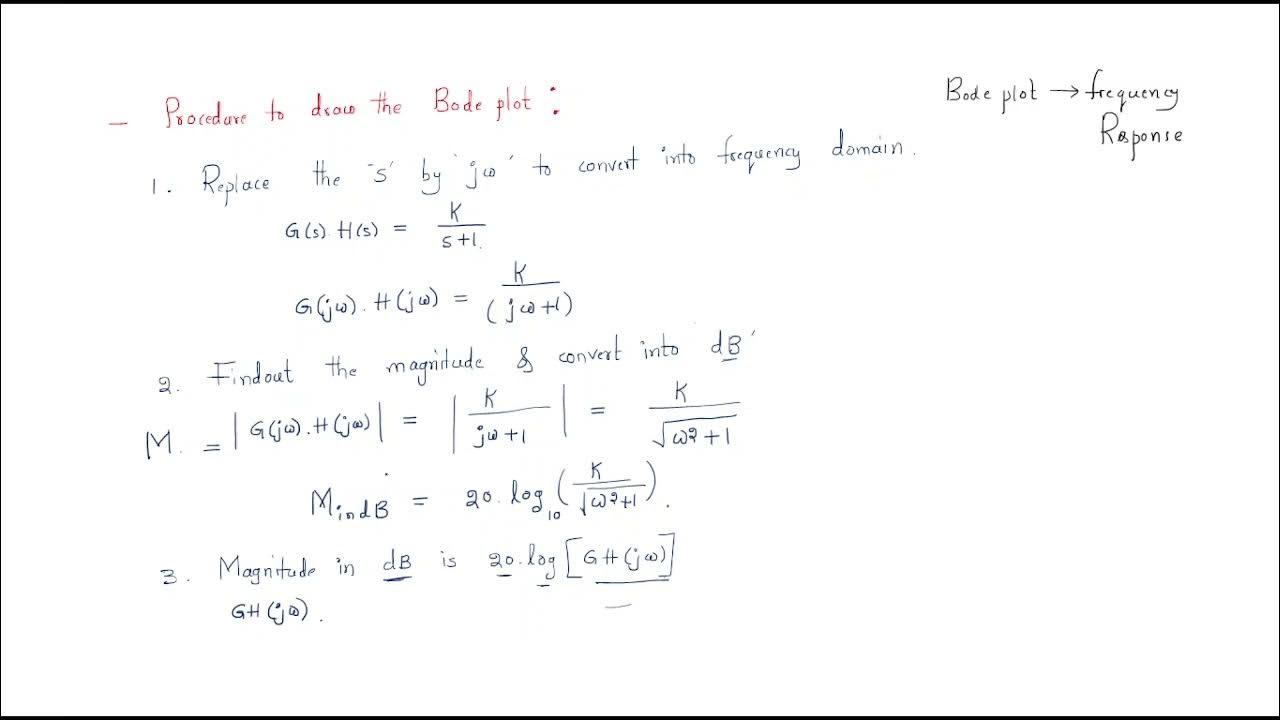 – Procedure to draw the Bode plot :
Bode plot → frequency
Response
1. Replace the 's' by 'jω' to convert into frequency domain.
G(s). H(s) = K / s+1.
G(jω). H(jω) = K / (jω+1)
2. Findout the magnitude & convert into dB'
M. = |G(jω).H(jω)| = |K / jω+1| = K / √ω2+1
MindB = 20.log10 (K / √ω2+1).
3. Magnitude in dB is 20.log[GH(jω)]
GH(jω).